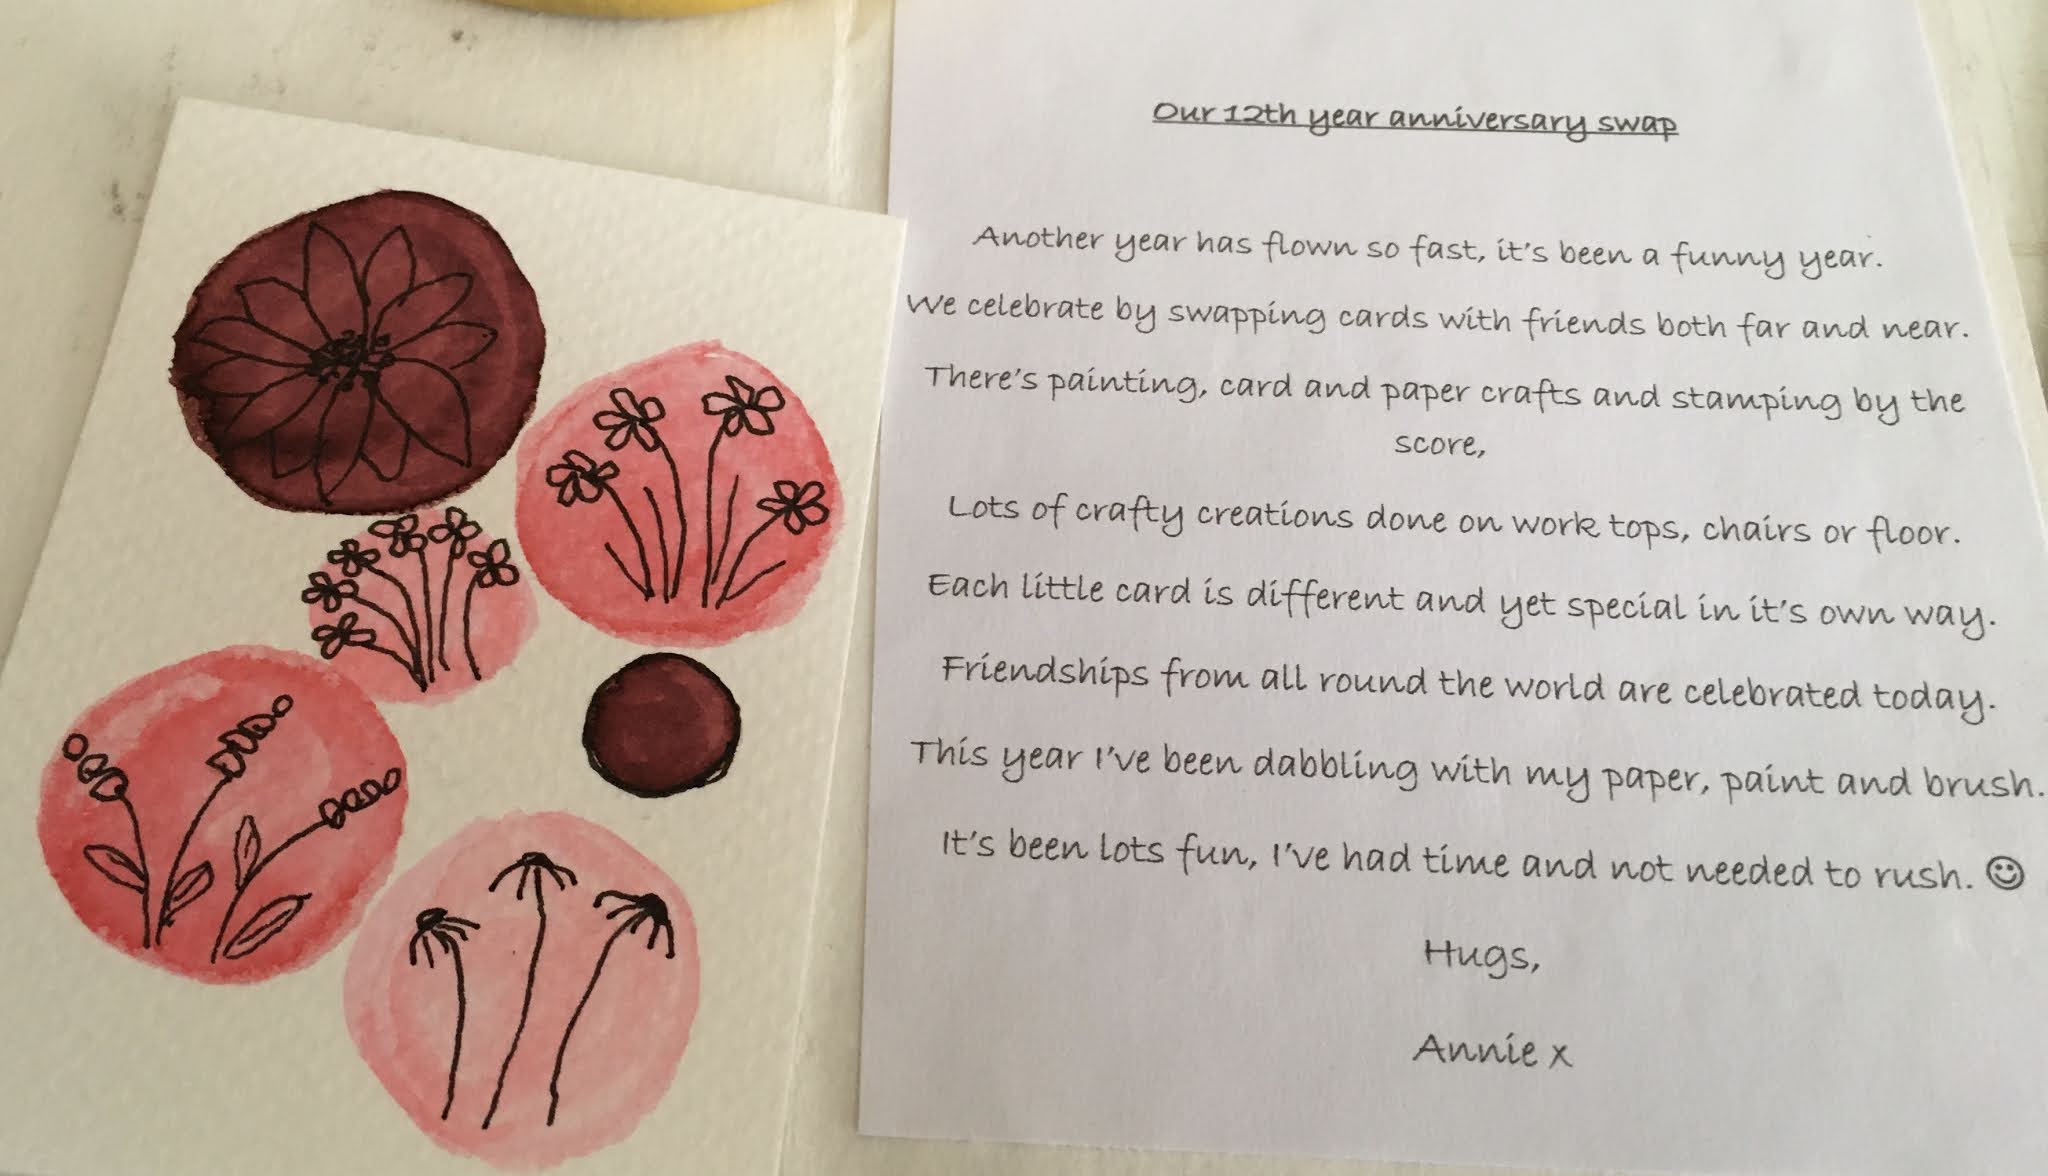 Our 12th year anniversary swap
Another year has flown so fast, it's been a funny year.
We celebrate by swapping cards with friends both far and near.
There's painting, card and paper crafts and stamping by the
score,
Lots of crafty creations done on work tops, chairs or floor.
Each little card is different and yet special in it's own way.
Friendships from all round the world are celebrated today.
This year I've been dabbling with my paper, paint and brush.
It's been lots fun, I've had time and not needed to rush. ☺
Hugs,
Annie x